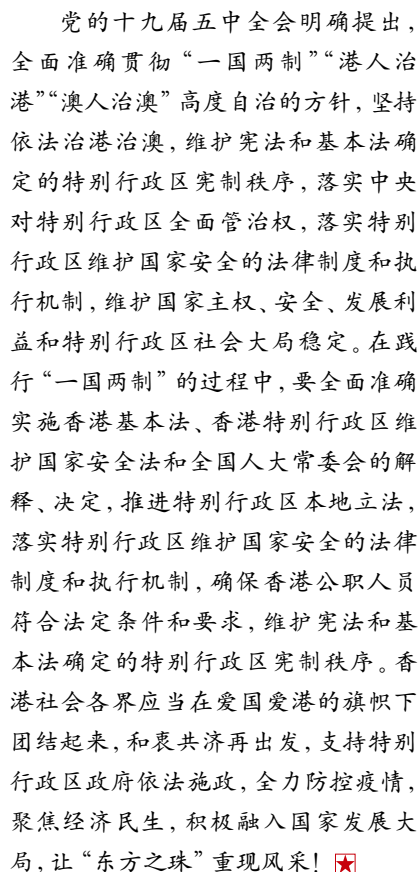 党的十九届五中全会明确提出，
全面准确贯彻“一国两制”“港人治
港”“澳人治澳”高度自治的方针，坚持
依法治港治澳，维护宪法和基本法确
定的特别行政区宪制秩序，落实中央
对特别行政区全面管治权，落实特别
行政区维护国家安全的法律制度和执
行机制，维护国家主权、安全、发展利
益和特别行政区社会大局稳定。在践
行“一国两制”的过程中，要全面准确
实施香港基本法、香港特别行政区维
护国家安全法和全国人大常委会的解
释、决定，推进特别行政区本地立法，
落实特别行政区维护国家安全的法律
制度和执行机制，确保香港公职人员
符合法定条件和要求，维护宪法和基
本法确定的特别行政区宪制秩序。香
港社会各界应当在爱国爱港的旗帜下
团结起来，和衷共济再出发，支持特别
行政区政府依法施政，全力防控疫情，
聚焦经济民生，积极融入国家发展大
局，让“东方之珠”重现风采！